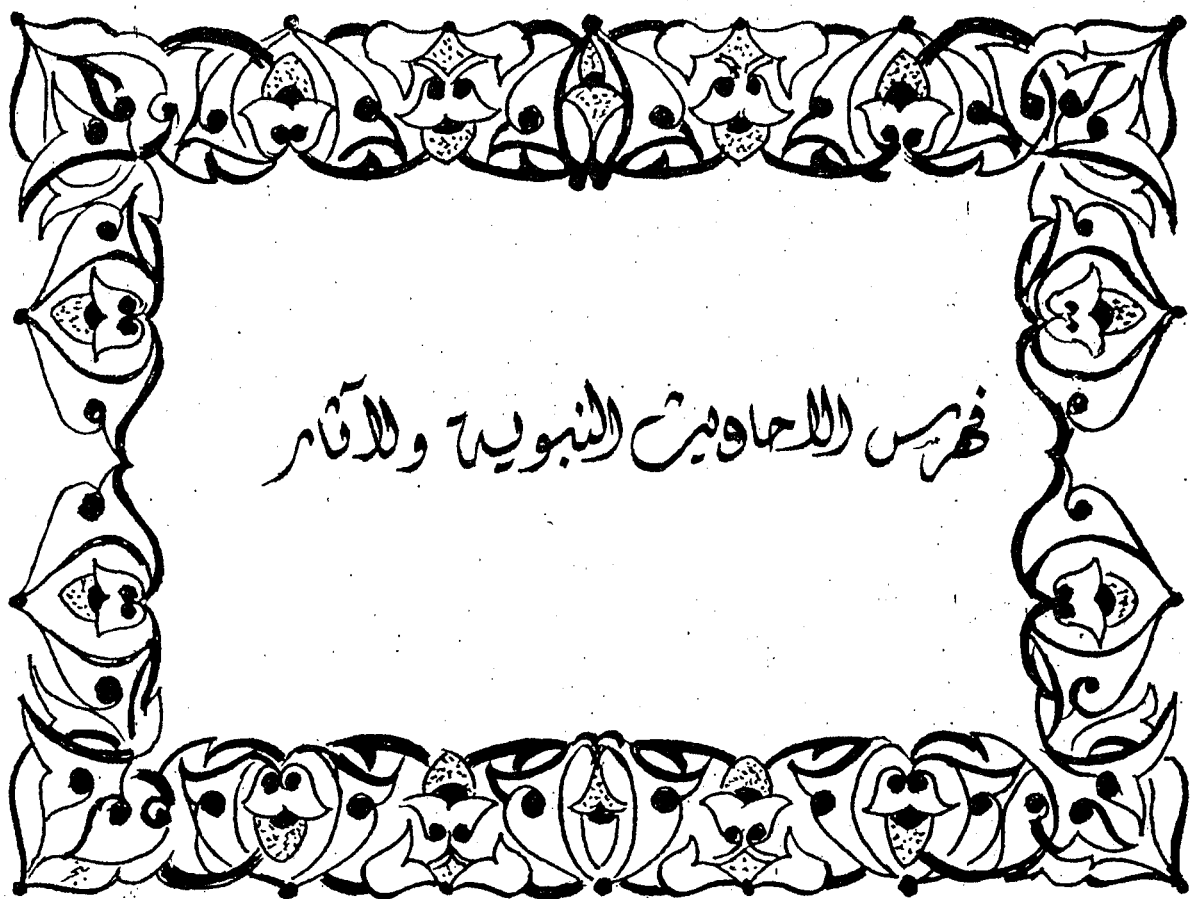 فهرس الاحاديث النبوية والآثار